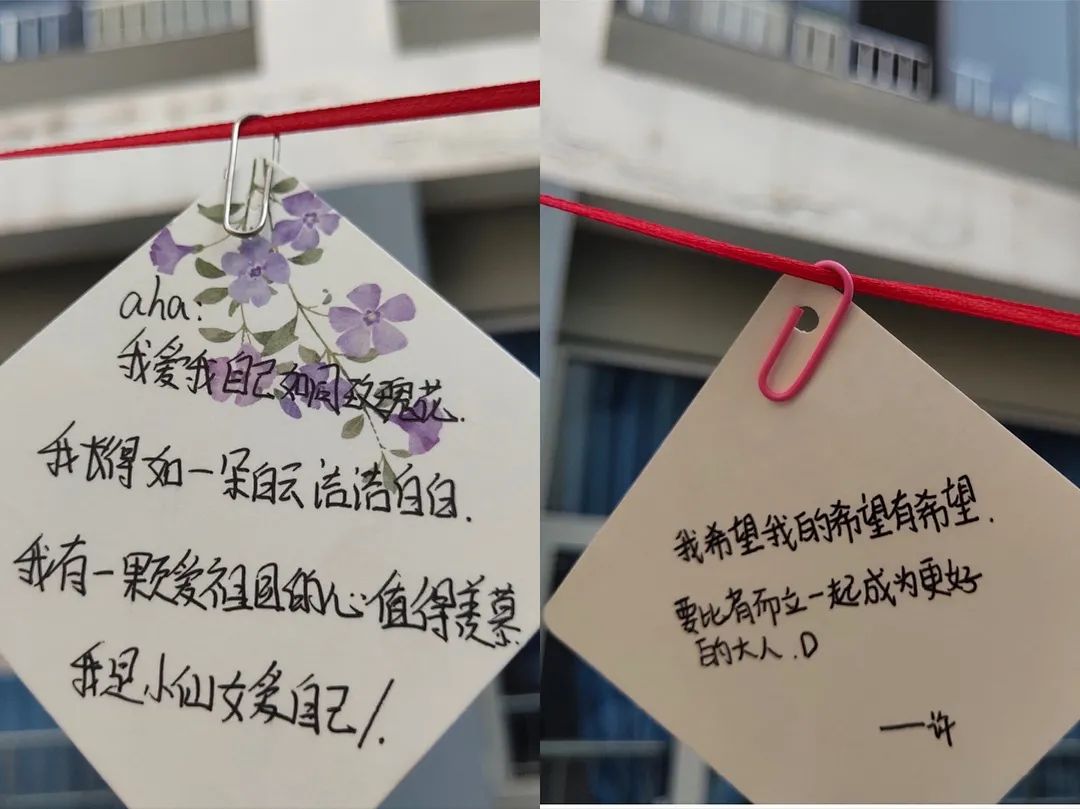 aha:
我爱我自己如同玫瑰花.
我长得如一朵白云洁洁白白.
我有一颗爱祖国的心值得羡慕
我是小仙女爱自己/.
我希望我的希望有希望.
要比肩而立一起成为更好
的大人.D
——许